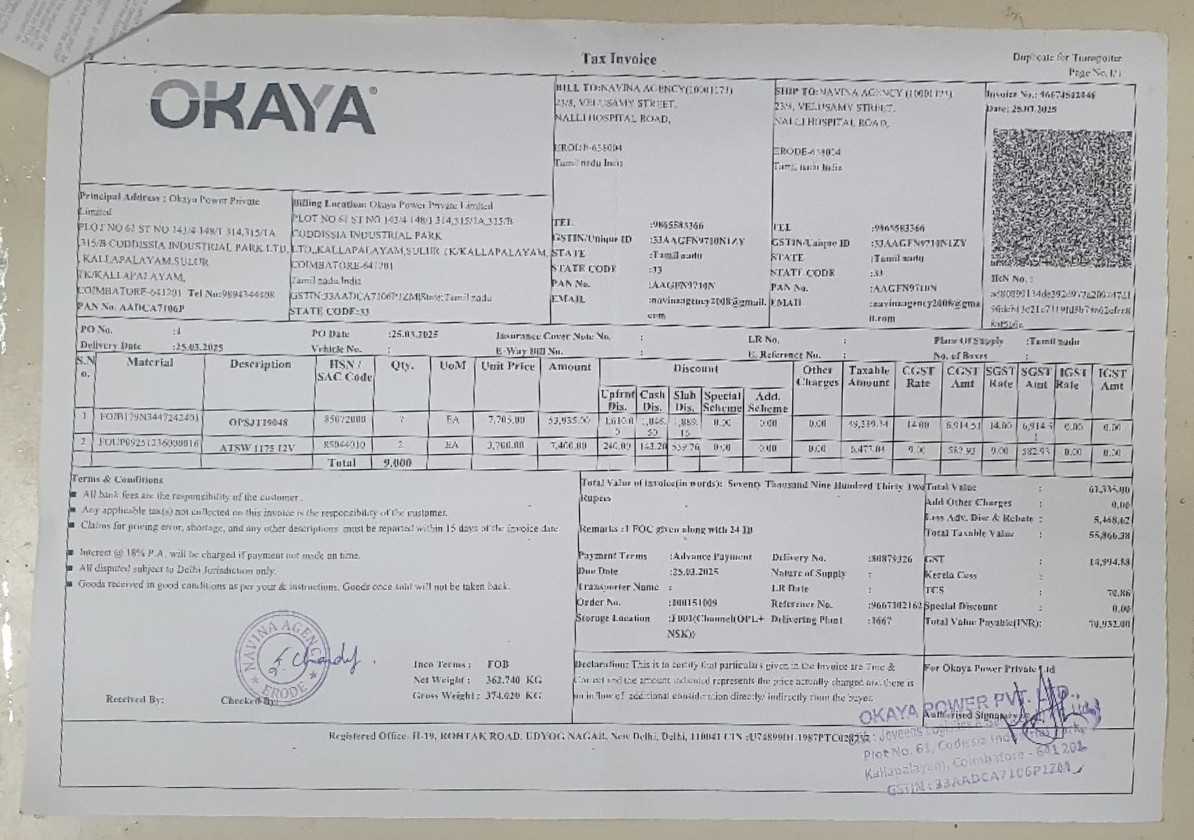 Tax Invoice
Duplicate for Transporter
Page No. 1/1
OKAYA
BILL TO:NAVINA AGENCY(10001173)
23/8, VELUSAMY STREET,
NALLI HOSPITAL ROAD,
ERODE-638004
Tamil nadu India
TEL :9865583366
GSTIN/Unique ID :33AAGFN9710N1ZY
STATE :Tamil nadu
STATE CODE :33
PAN No. :AAGFN9710N
EMAIL :navinaagency2008@gmail.
com
SHIP TO:NAVINA AGENCY (10001173)
23/8, VELUSAMY STREET,
NALLI HOSPITAL ROAD,
ERODE-638004
Tamil nadu India
TEL :9865583366
GSTIN/Unique ID :33AAGFN9710N1ZY
STATE :Tamil nadu
STATE CODE :33
PAN No. :AAGFN9710N
EMAIL :navinaagency2008@gma
il.com
Invoice No.:
Date: 25.03.2025
IRN No. :
Principal Address : Okaya Power Private
Limited
PLOT NO 61 ST NO 143/4 148/1 314,315/1A
,315/B CODDISSIA INDUSTRIAL PARK LTD,
, KALLAPALAYAM,SULUR
TK/KALLAPALAYAM,
COIMBATORE-641201 Tel No:9894344408
PAN No. AADCA7106P
Billing Location: Okaya Power Private Limited
PLOT NO 61 ST NO 143/4 148/1 314,315/1A,315/B
CODDISSIA INDUSTRIAL PARK
LTD,,KALLAPALAYAM,SULUR TK/KALLAPALAYAM,
COIMBATORE-641201
Tamil nadu India
GSTIN:33AADCA7106P1ZM|State:Tamil nadu
STATE CODE:33
PO No. :4 PO Date :25.03.2025 Insurance Cover Note No. : LR No. : Place Of Supply :Tamil nadu
Delivery Date :25.03.2025 Vehicle No. : E-Way Bill No. : E. Reference No. : No. of Boxes :
S.N
o. Material Description HSN /
SAC Code Qty. UoM Unit Price Amount Discount Other
Charges Taxable
Amount CGST
Rate CGST
Amt SGST
Rate SGST
Amt IGST
Rate IGST
Amt
Upfrnt
Dis. Cash
Dis. Slab
Dis. Special
Scheme Add.
Scheme
1 OPSJT19048 85072000 7 EA 7,705.00 53,935.00 0.00 0.00 0.00 14.00 14.00 0.00 0.00
2 ATSW 1175 12V 85044010 2 EA 3,700.00 7,400.00 0.00 0.00 0.00 9.00 582.93 9.00 582.93 0.00 0.00
Total 9.000
Terms & Conditions
All bank fees are the responsibility of the customer .
Any applicable tax(s) not collected on this invoice is the responsibility of the customer.
Claims for pricing error, shortage, and any other descriptions must be reported within 15 days of the invoice date
Interest @ 18% P.A. will be charged if payment not made on time.
All disputed subject to Delhi Jurisdiction only.
Goods received in good conditions as per your & instructions. Goods once sold will not be taken back.
Total Value of invoice(in words): Seventy Thousand Nine Hundred Thirty Two
Rupees
Remarks :1 FOC given along with 24 TB
Payment Terms :Advance Payment Delivery No. :80879326
Due Date :25.03.2025 Nature of Supply :
Transporter Name : LR Date :
Order No. Reference No. :9667302162
Storage Location :F001(Channel(OPL+
NSK)) Delivering Plant :1667
Total Value : 61,335.00
Add Other Charges : 0.00
Less Adv. Disc & Rebate : 5,468.62
Total Taxable Value : 55,866.38
GST : 14,994.88
Kerela Cess :
TCS : 70.86
Special Discount : 0.00
Total Value Payable(INR): 70,932.00
NAVINA AGENCY
ERODE
Inco Terms : FOB
Net Weight : 362.740 KG
Gross Weight : 374.020 KG
Received By: Checked By:
Declaration: This is to certify that particulars given in the Invoice are True &
Correct and the amount indicated represents the price actually charged and there is
no inflow of additional consideration directly/indirectly from the buyer.
For Okaya Power Private Ltd
Authorised Signatory
OKAYA POWER PVT. LTD.,
Plot No. 61, Codissia Industrial Park,
Kallapalayam, Coimbatore - 641 201
GSTIN : 33AADCA7106P1ZM
Registered Office: H-19, ROHTAK ROAD, UDYOG NAGAR, New Delhi, Delhi, 110041 CIN :U74899DL1987PTC028232